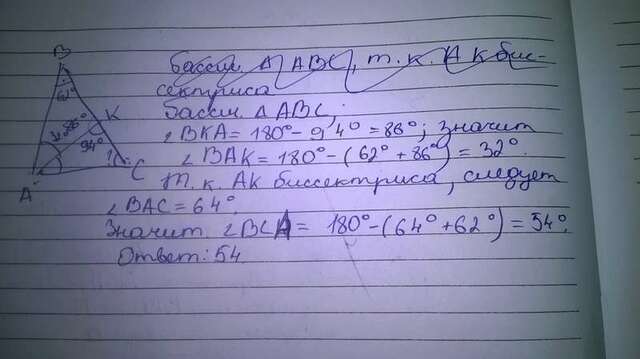 Рассм. Δ ABC, т.к. AK бис-
сектриса
Рассм. Δ ABC;
∠BKA = 180° - 94° = 86°; значит
∠BAK = 180° - (62° + 86°) = 32°.
Т.к. AK биссектриса, следует
∠BAC = 64°.
Значит ∠BCA = 180° - (64° + 62°) = 54°.
Ответ: 54.
B
62°
K
86°
94°
?
C
A